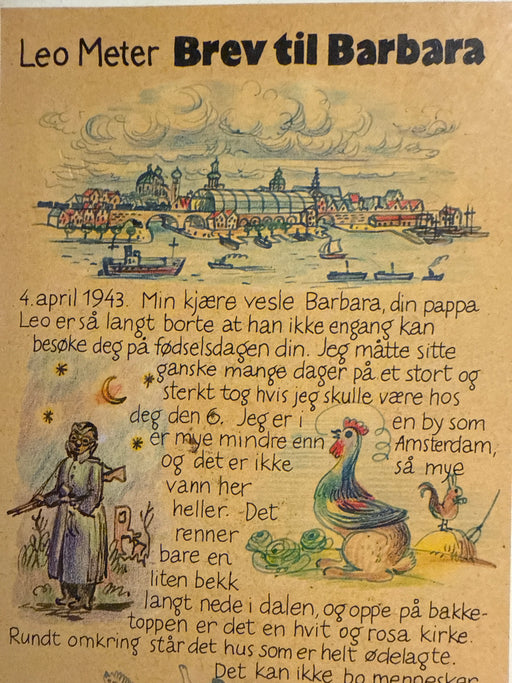 Leo Meter Brev til Barbara
4. april 1943. Min kjære vesle Barbara, din pappa
Leo er så langt borte at han ikke engang kan
besøke deg på fødselsdagen din. Jeg måtte sitte
ganske mange dager på et stort og
sterkt tog hvis jeg skulle være hos
deg den 6. Jeg er i en by som
er mye mindre enn Amsterdam,
og det er ikke så mye
vann her
heller. Det
renner
bare en
liten bekk
langt nede i dalen, og oppe på bakke-
toppen er det en hvit og rosa kirke.
Rundt omkring står det hus som er helt ødelagte.
Det kan ikke bo mennesker